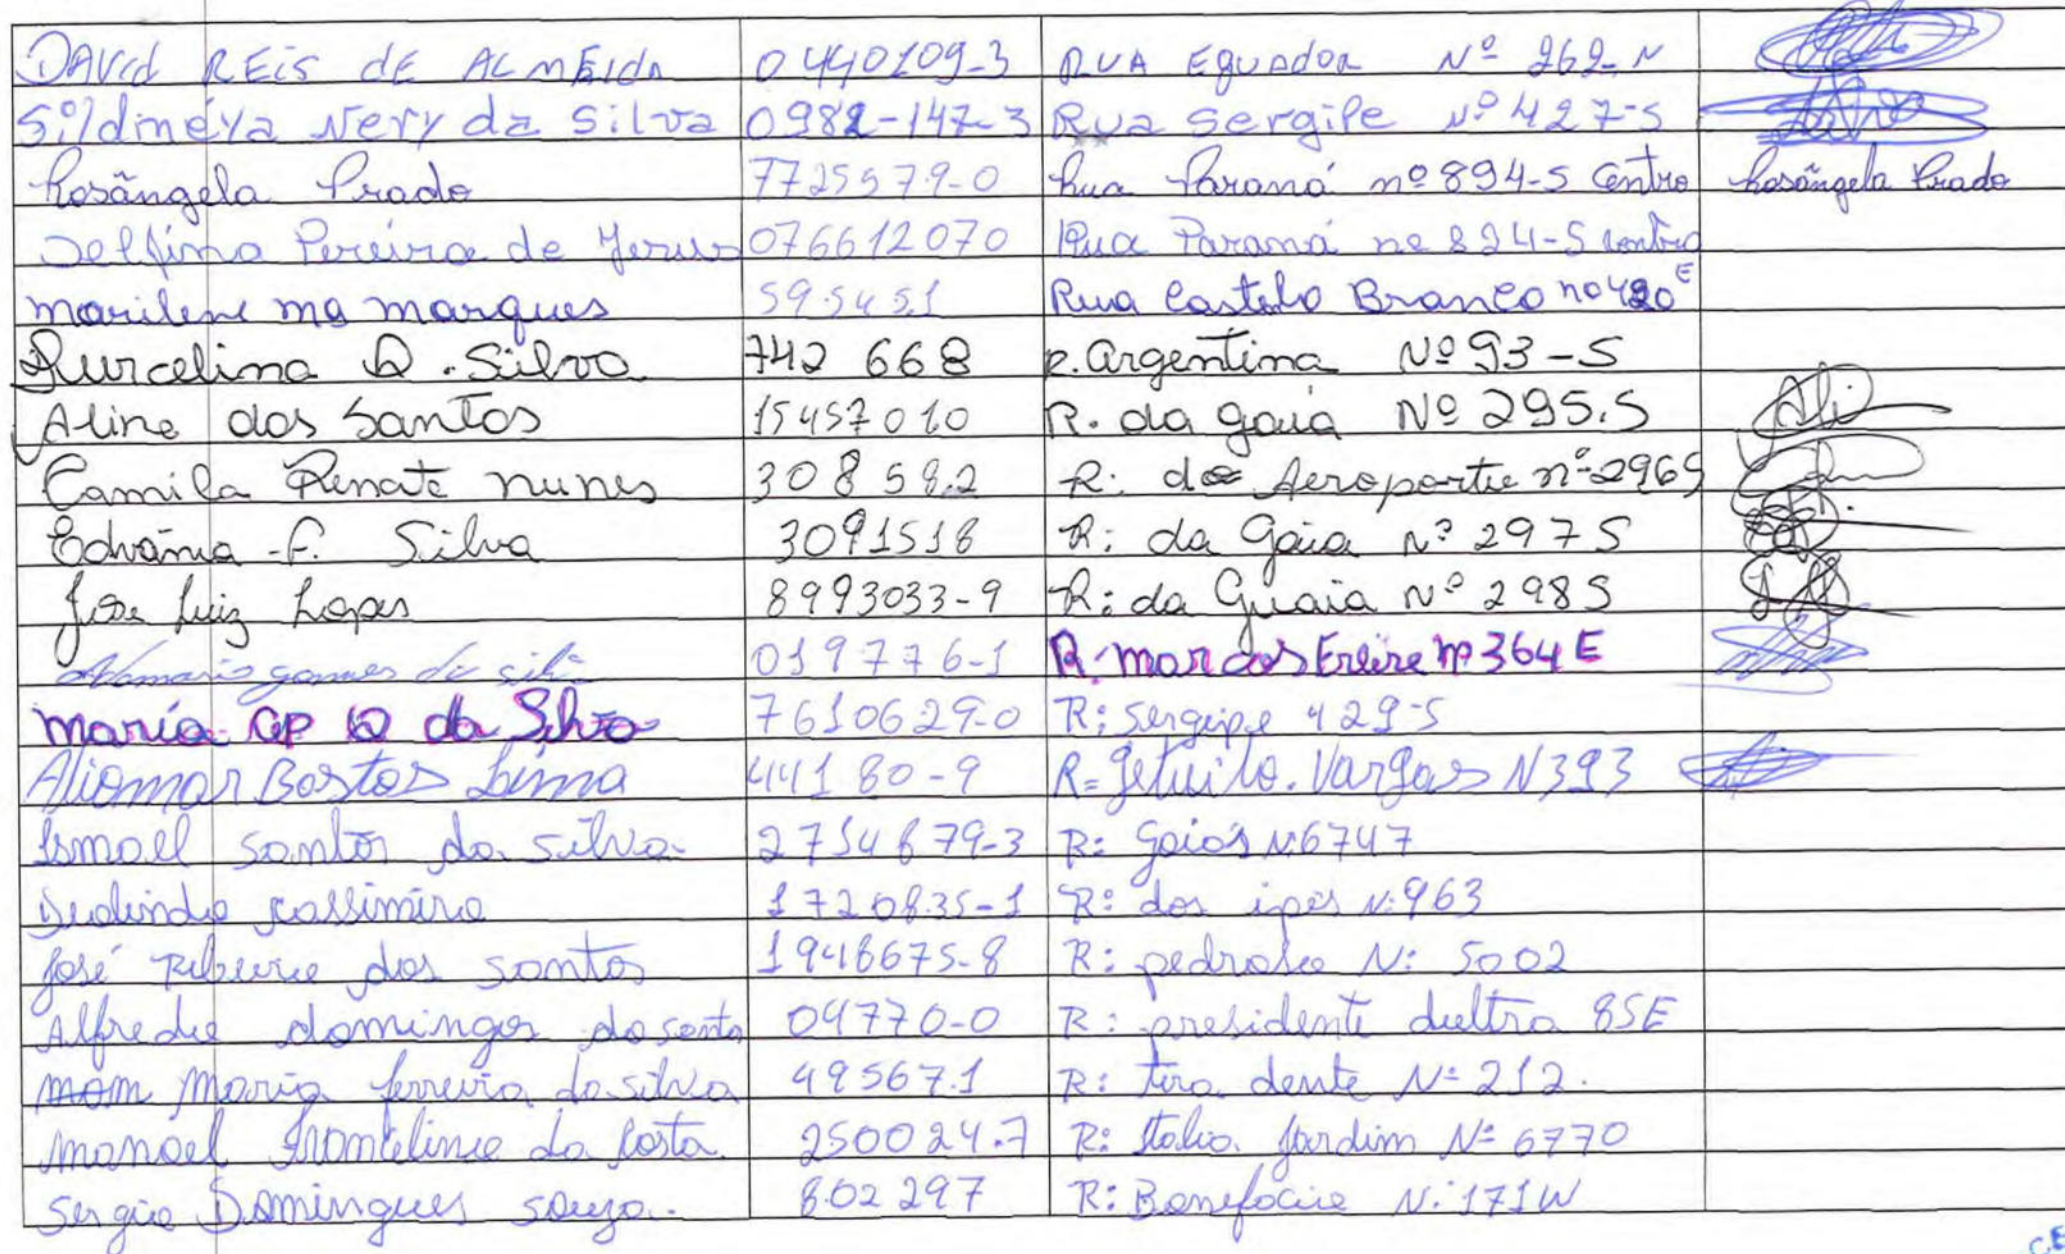 DAVId REis dE ALMEIDA 0440109-3 RUA EQUADOR Nº 262-N
Sildineya Nery da Silva 0982-147-3 Rua Sergipe Nº 427-S
Rosângela Prado 7725579-0 Rua Paraná nº 894-S Centro Rosângela Prado
Delfina Pereira de Jesus 076612070 Rua Paraná no 894-S centro
marilene ma marques 595451 Rua Castelo Branco no 420 E
Durcelina D. Silva 742 668 R. Argentina Nº 93-S
Aline dos Santos 15457010 R. da gaia Nº 295.S
Camila Renate nunes 308 592 R: do Aeroporto nº 296S
Edvânia F. Silva 3091518 R: da Gaia Nº 297S
Jose Luiz Lopes 8993033-9 R: da Guaia Nº 298S
gomes da 019776-1 R. marcos Freire nº 364 E
maria AP D da Silva 7610629-0 R: Sergipe 429-S
Aliomar Bastos Lima 44180-9 R= Getuilo. Vargas N393
Ismael santos da silva 2754679-3 R: Goiás N:6747
cassimiro 1720835-1 R: dos ipês N:963
José Ribeiro dos santos 1948675-8 R: N: 5002
Alfredo domingos do santo 04770-0 R: presidente dultra 85E
Maria ferreira da silva 49567.1 R: tira dente Nº 212.
manoel da Costa 250024-7 R: Italia Jardim Nº 6770
Sergio Domingues souza. 802297 R: Bonefacio N: 171W
CE